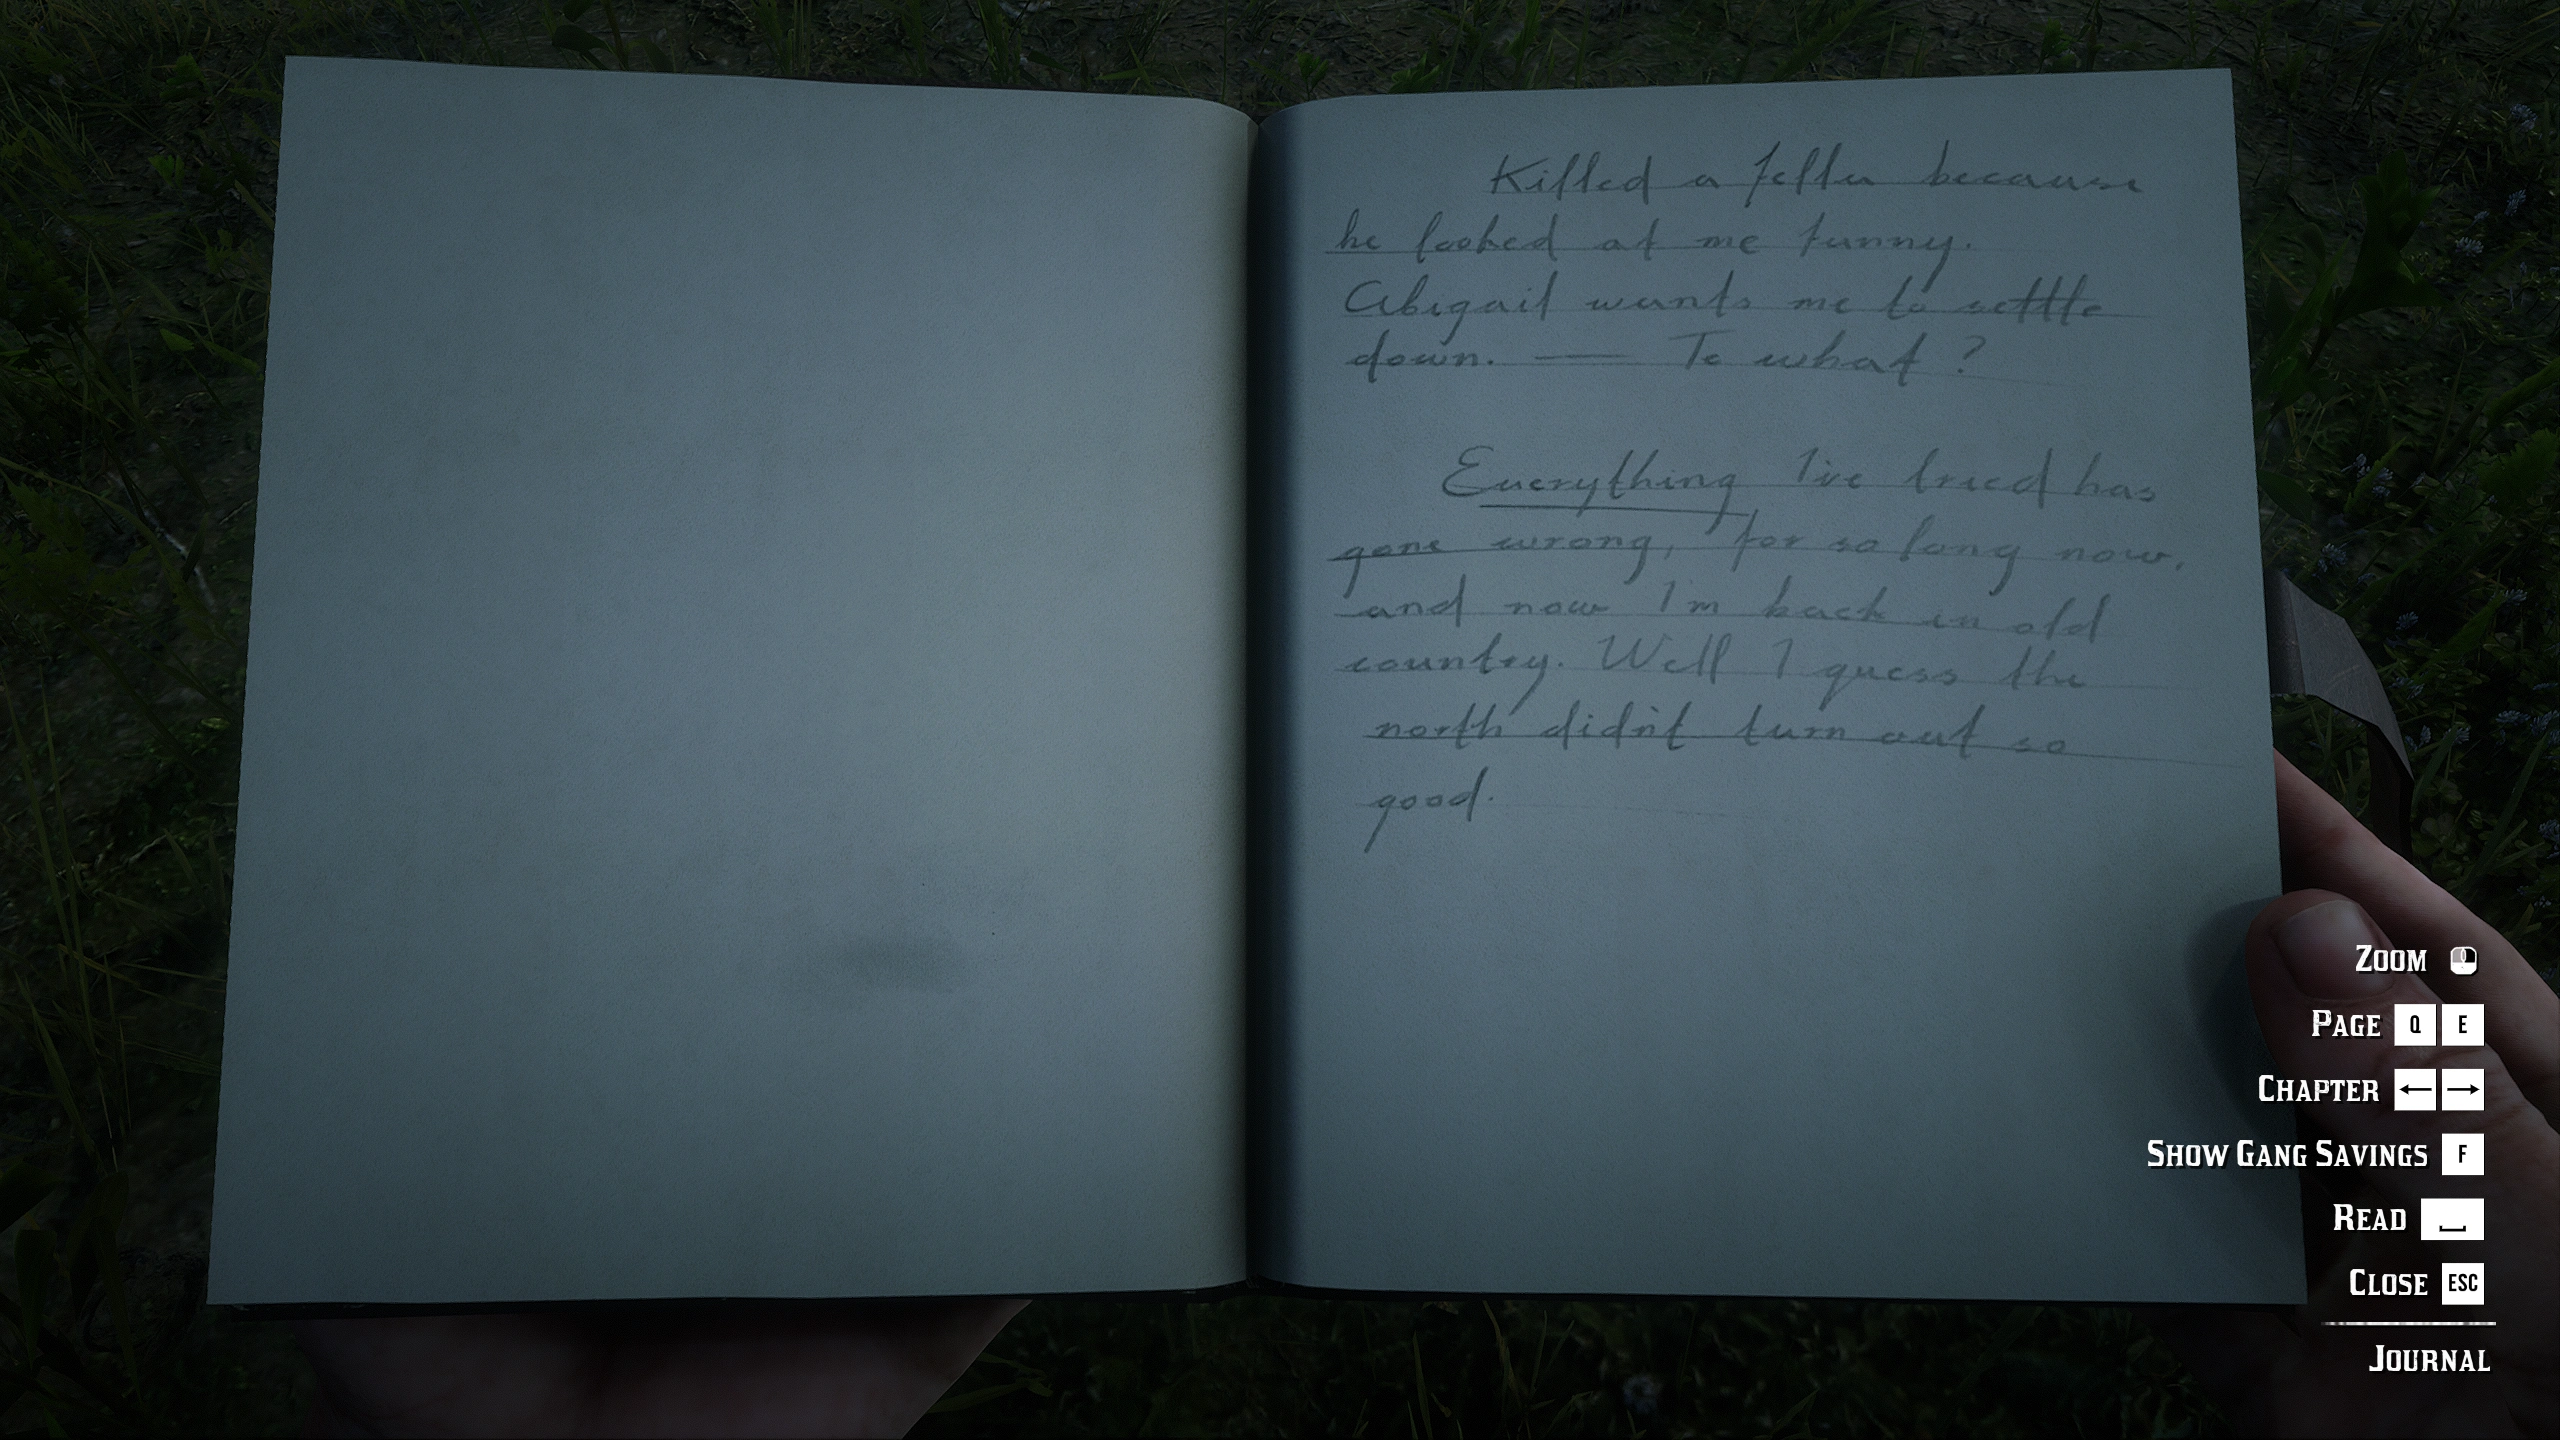 Killed a feller because
he looked at me funny.
Abigail wants me to settle
down. — To what?
Everything I've tried has
gone wrong, for so long now,
and now I'm back in old
country. Well I guess the
north didn't turn out so
good.
ZOOM
PAGE Q E
CHAPTER ← →
SHOW GANG SAVINGS F
READ
CLOSE ESC
JOURNAL